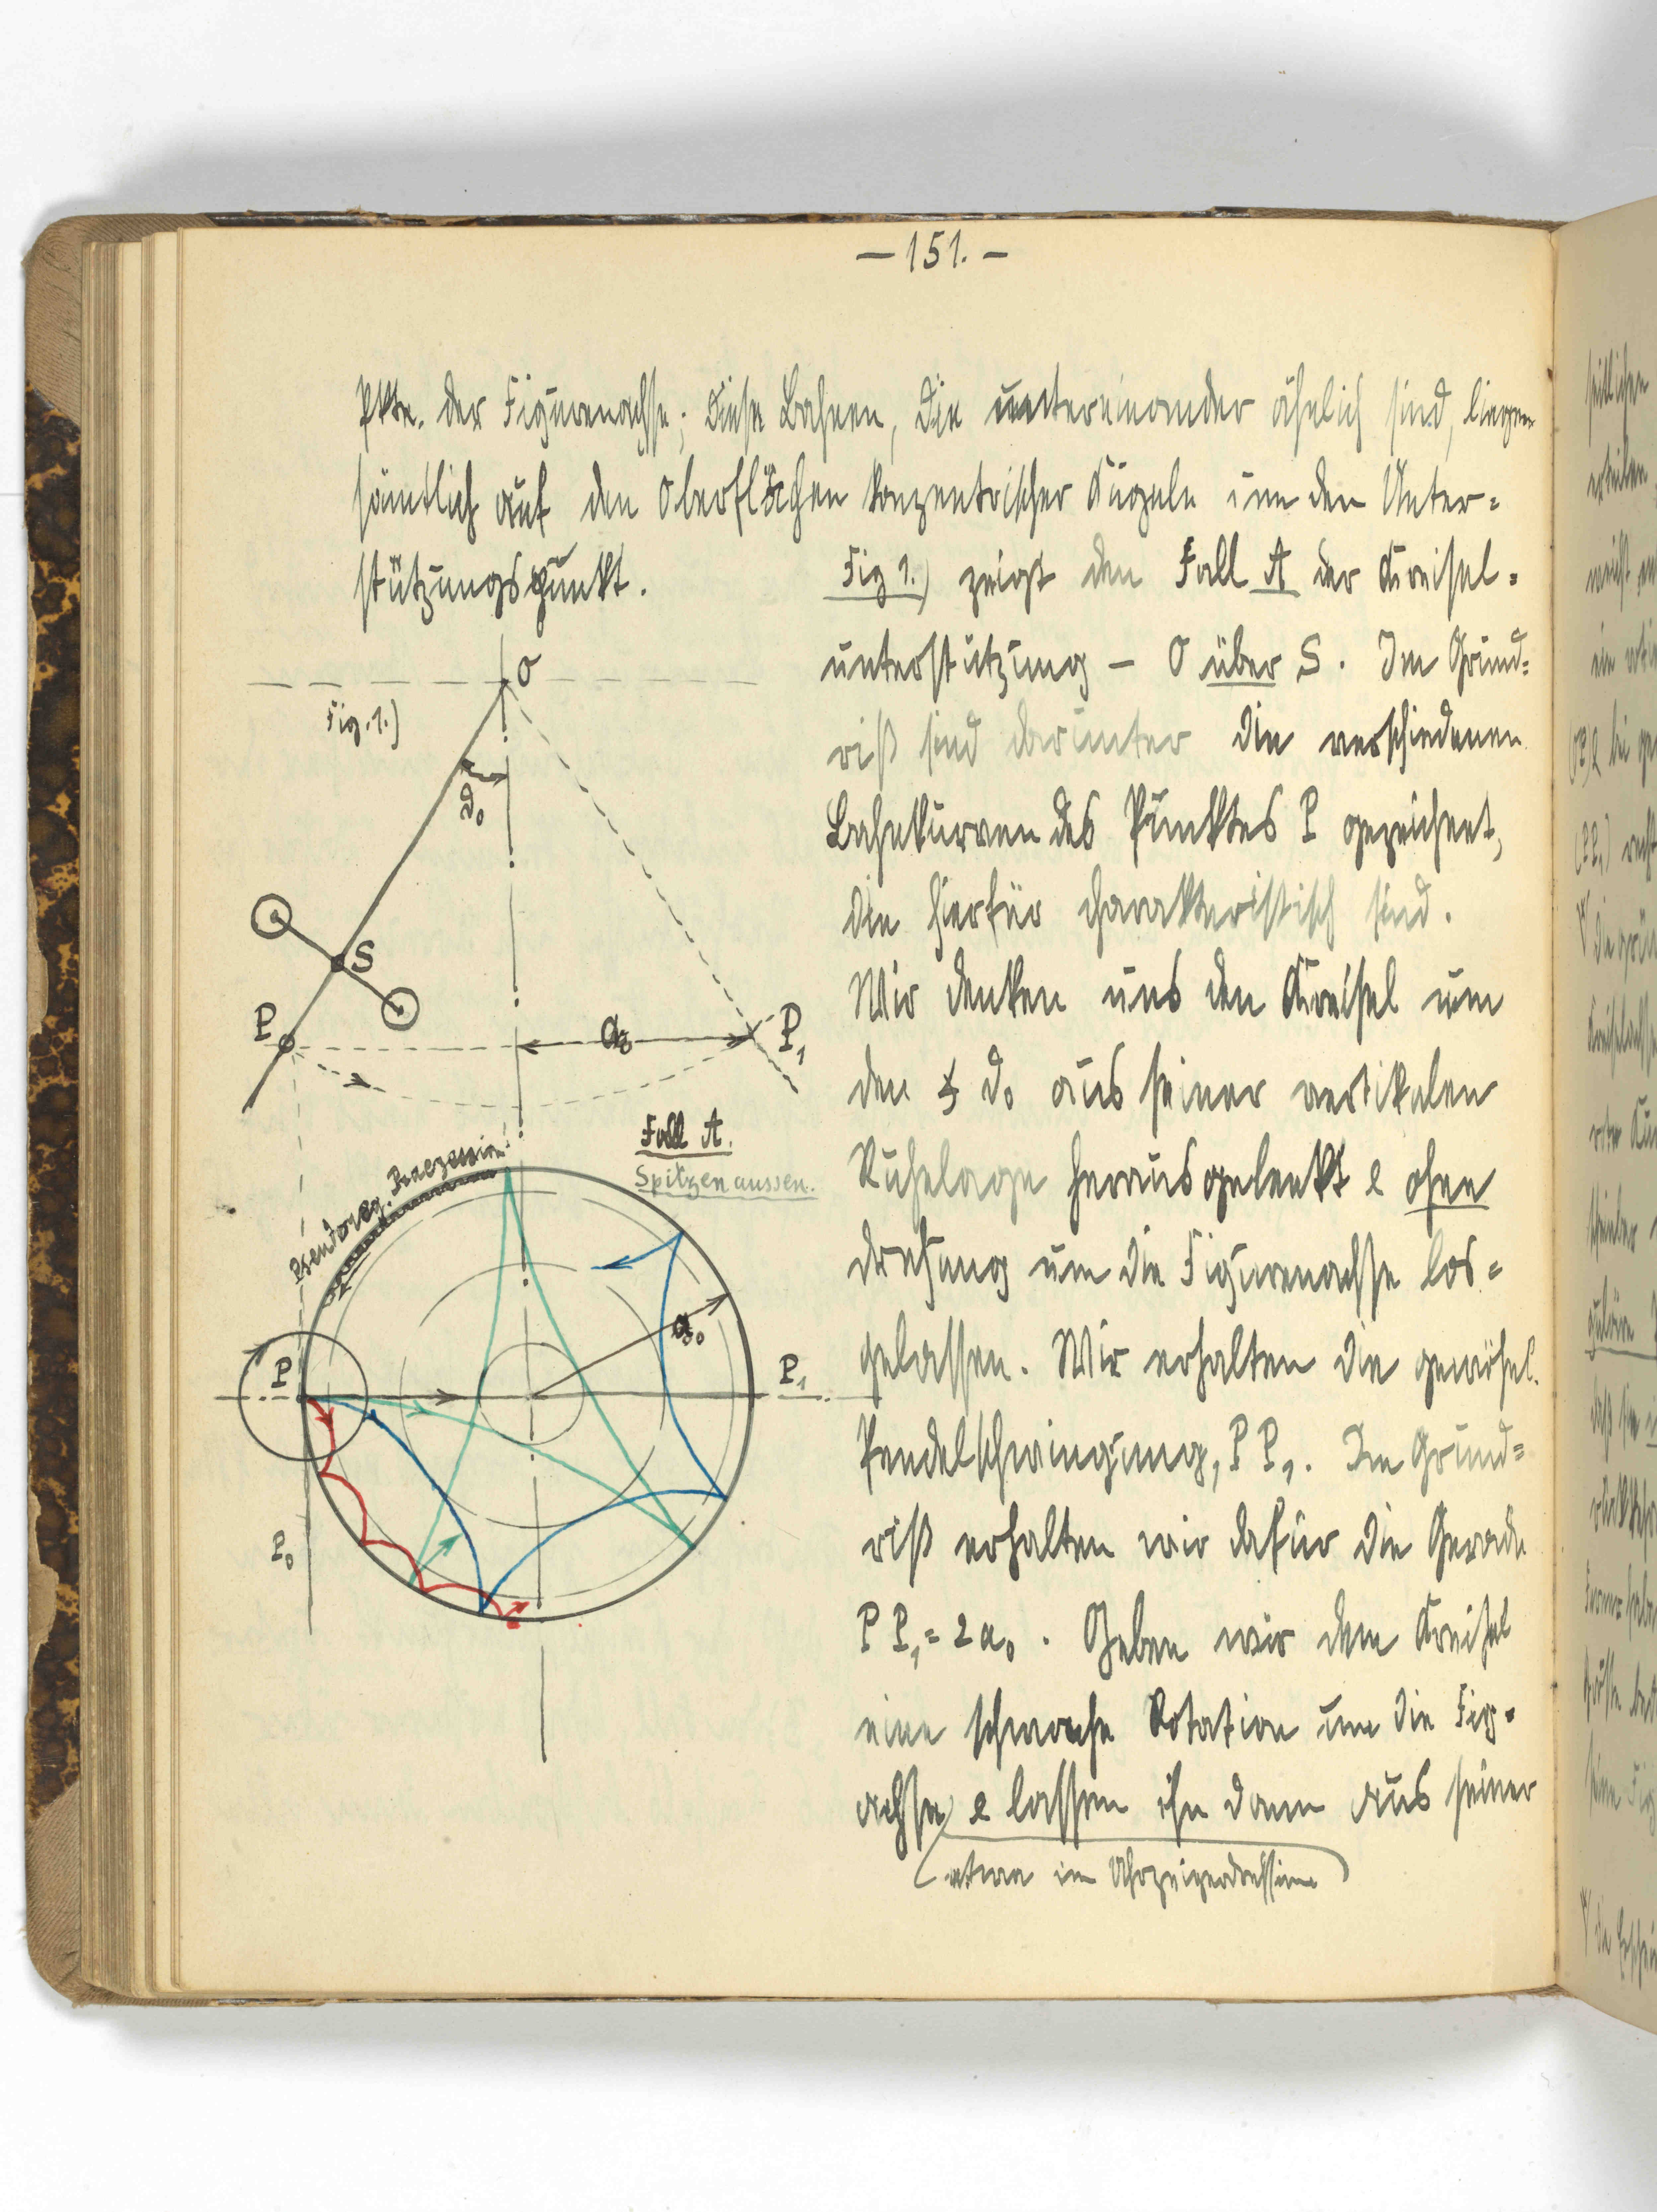 — 151. —
Pkte. der Figurenachse; diese Bahnen, die untereinander ähnlich sind, liegen
sämtlich auf den Oberflächen konzentrischer Kugeln um den Unter=
stützungspunkt.
Fig 1.) zeigt den Fall A der Kreisel=
unterstützung – O über S. Im Grund=
riß sind darunter die verschiedenen
Bahnkurven des Punktes P gezeichnet,
die hierfür charakteristisch sind.
Wir denken uns den Kreisel um
den ∢ ϑ₀ aus seiner vertikalen
Ruhelage herausgelenkt & ohne
Drehung um die Figurenachse los=
gelassen. Wir erhalten die gewöhnl.
Pendelschwingung, P P₁. Im Grund=
riß erhalten wir dafür die Gerade
P P₁ = 2 a₀. Geben wir dem Kreisel
eine schwache Rotation um die Fig.
achse & lassen ihn dann aus seiner
(etwa im Uhrzeigerdrehsinne)
O
Fig. 1.)
ϑ₀
S
P
P₁
Fall A.
Spitzen aussen.
Pseudoreg. Praezession
a₀
P
P₁
P₀